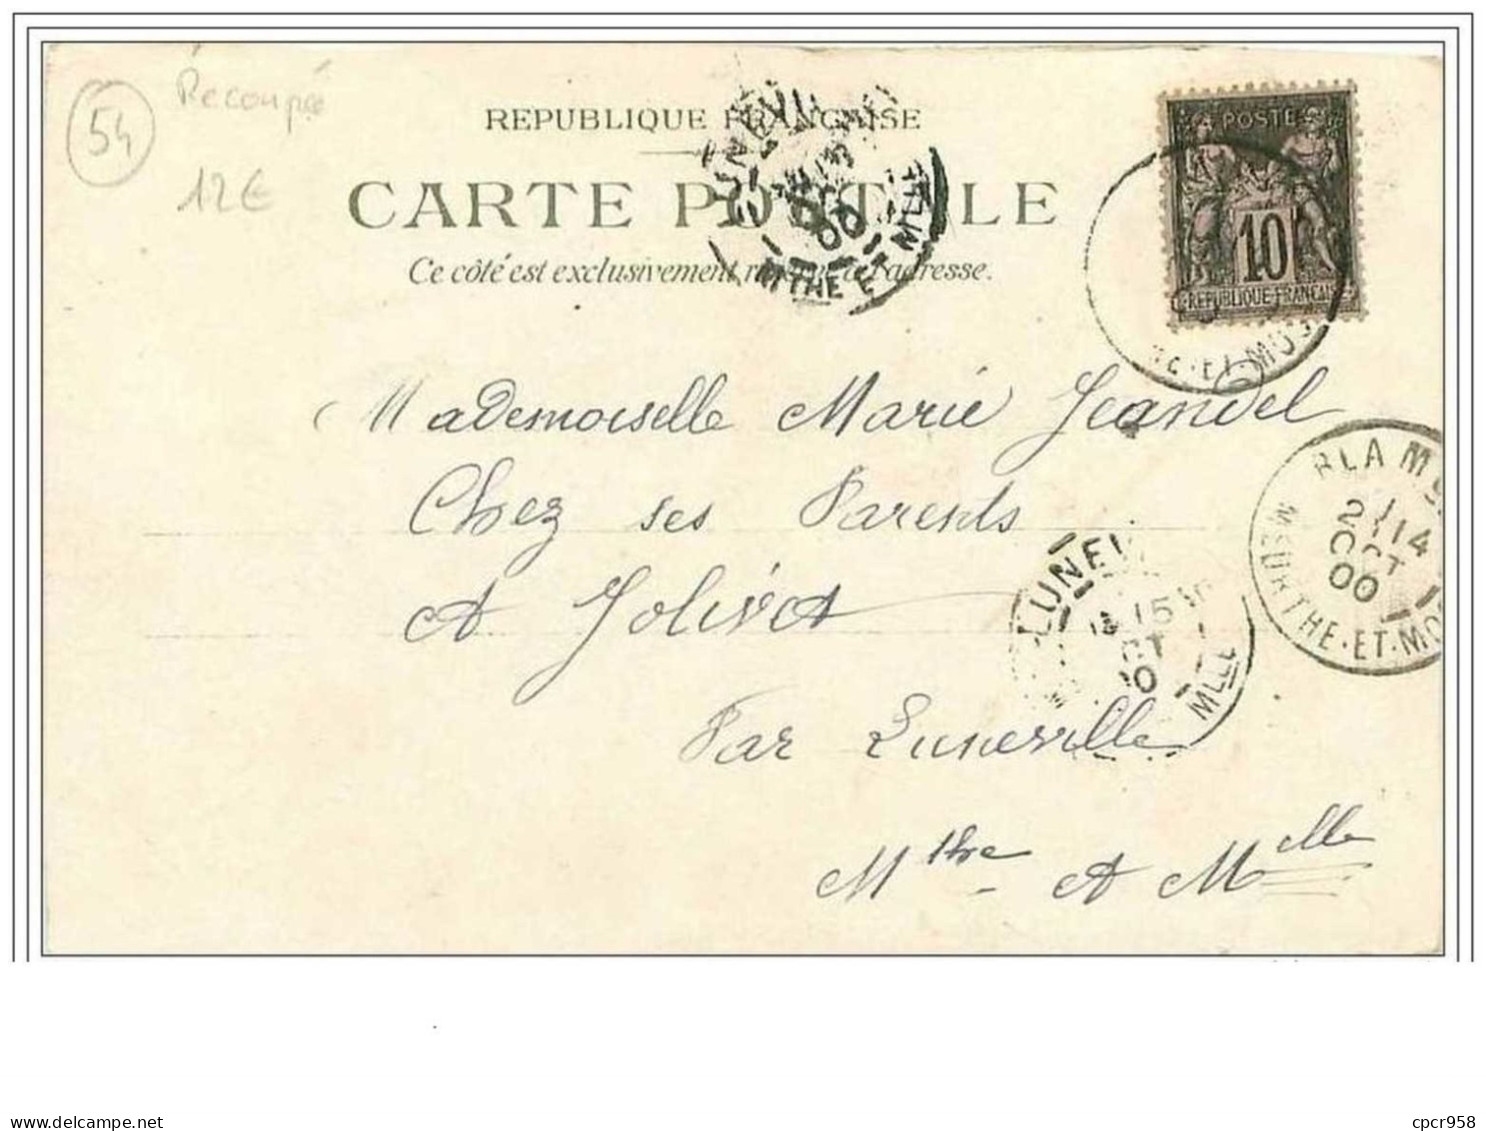 54
Recoupée
12€
REPUBLIQUE FRANÇAISE
CARTE POSTALE
Ce côté est exclusivement réservé à l'adresse.
POSTES
10
REPUBLIQUE FRANÇAISE
ET·MOS
MTHE ET MLLE
00
Mademoiselle Marie Jeandel
Chez ses Parents
A Jolivet
Par Luneville
Mthe et Mlle
BLAMO
2 14
OCT
00
MEURTHE·ET·MO
LUNEV
15
MLLE
delcampe.net
cpcr958